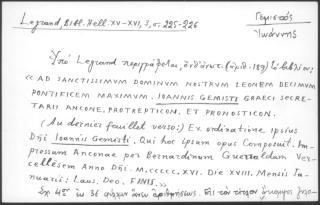 Legrand, Bibl. Hell. XV-XVI, 3, σ. 225-226
Γεμιστός
Ἰωάννης
Ὑπὸ Legrand περιγράφεται, (ἀριθ. 189) τὸ βιβλίον:
« AD SANCTISSIMVM DOMINVM NOSTRVM LEONEM DECIMVM
PONTIFICEM MAXIMVM. IOANNIS GEMISTI GRAECI SECRE-
TARII ANCONE, PROTREPTICON. ET PRONOSTICON.
(Au dernier feuillet verso:) Ex ordinatione ipsius
Dñi Ioannis Gemisti. Qui hoc ipsum opus Composuit. Im-
pressum Anconae per Bernardinum Guerraldum Ver-
cellēsem Anno Dñi. M.CCCCC.XVI. Die XVIII. Mensis Ia-
nuarii: Laus. Deo. FINIS. »
Σχ. 4ον ἐκ 36 φύλλων ἄνευ ἀριθμήσεως.